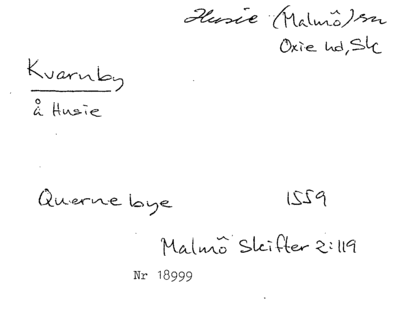 Husie (Malmö) sn
Oxie hd, Sk
Kvarnby
å Husie
Quernebye 1559
Malmö Skifter 2:119
Nr 18999